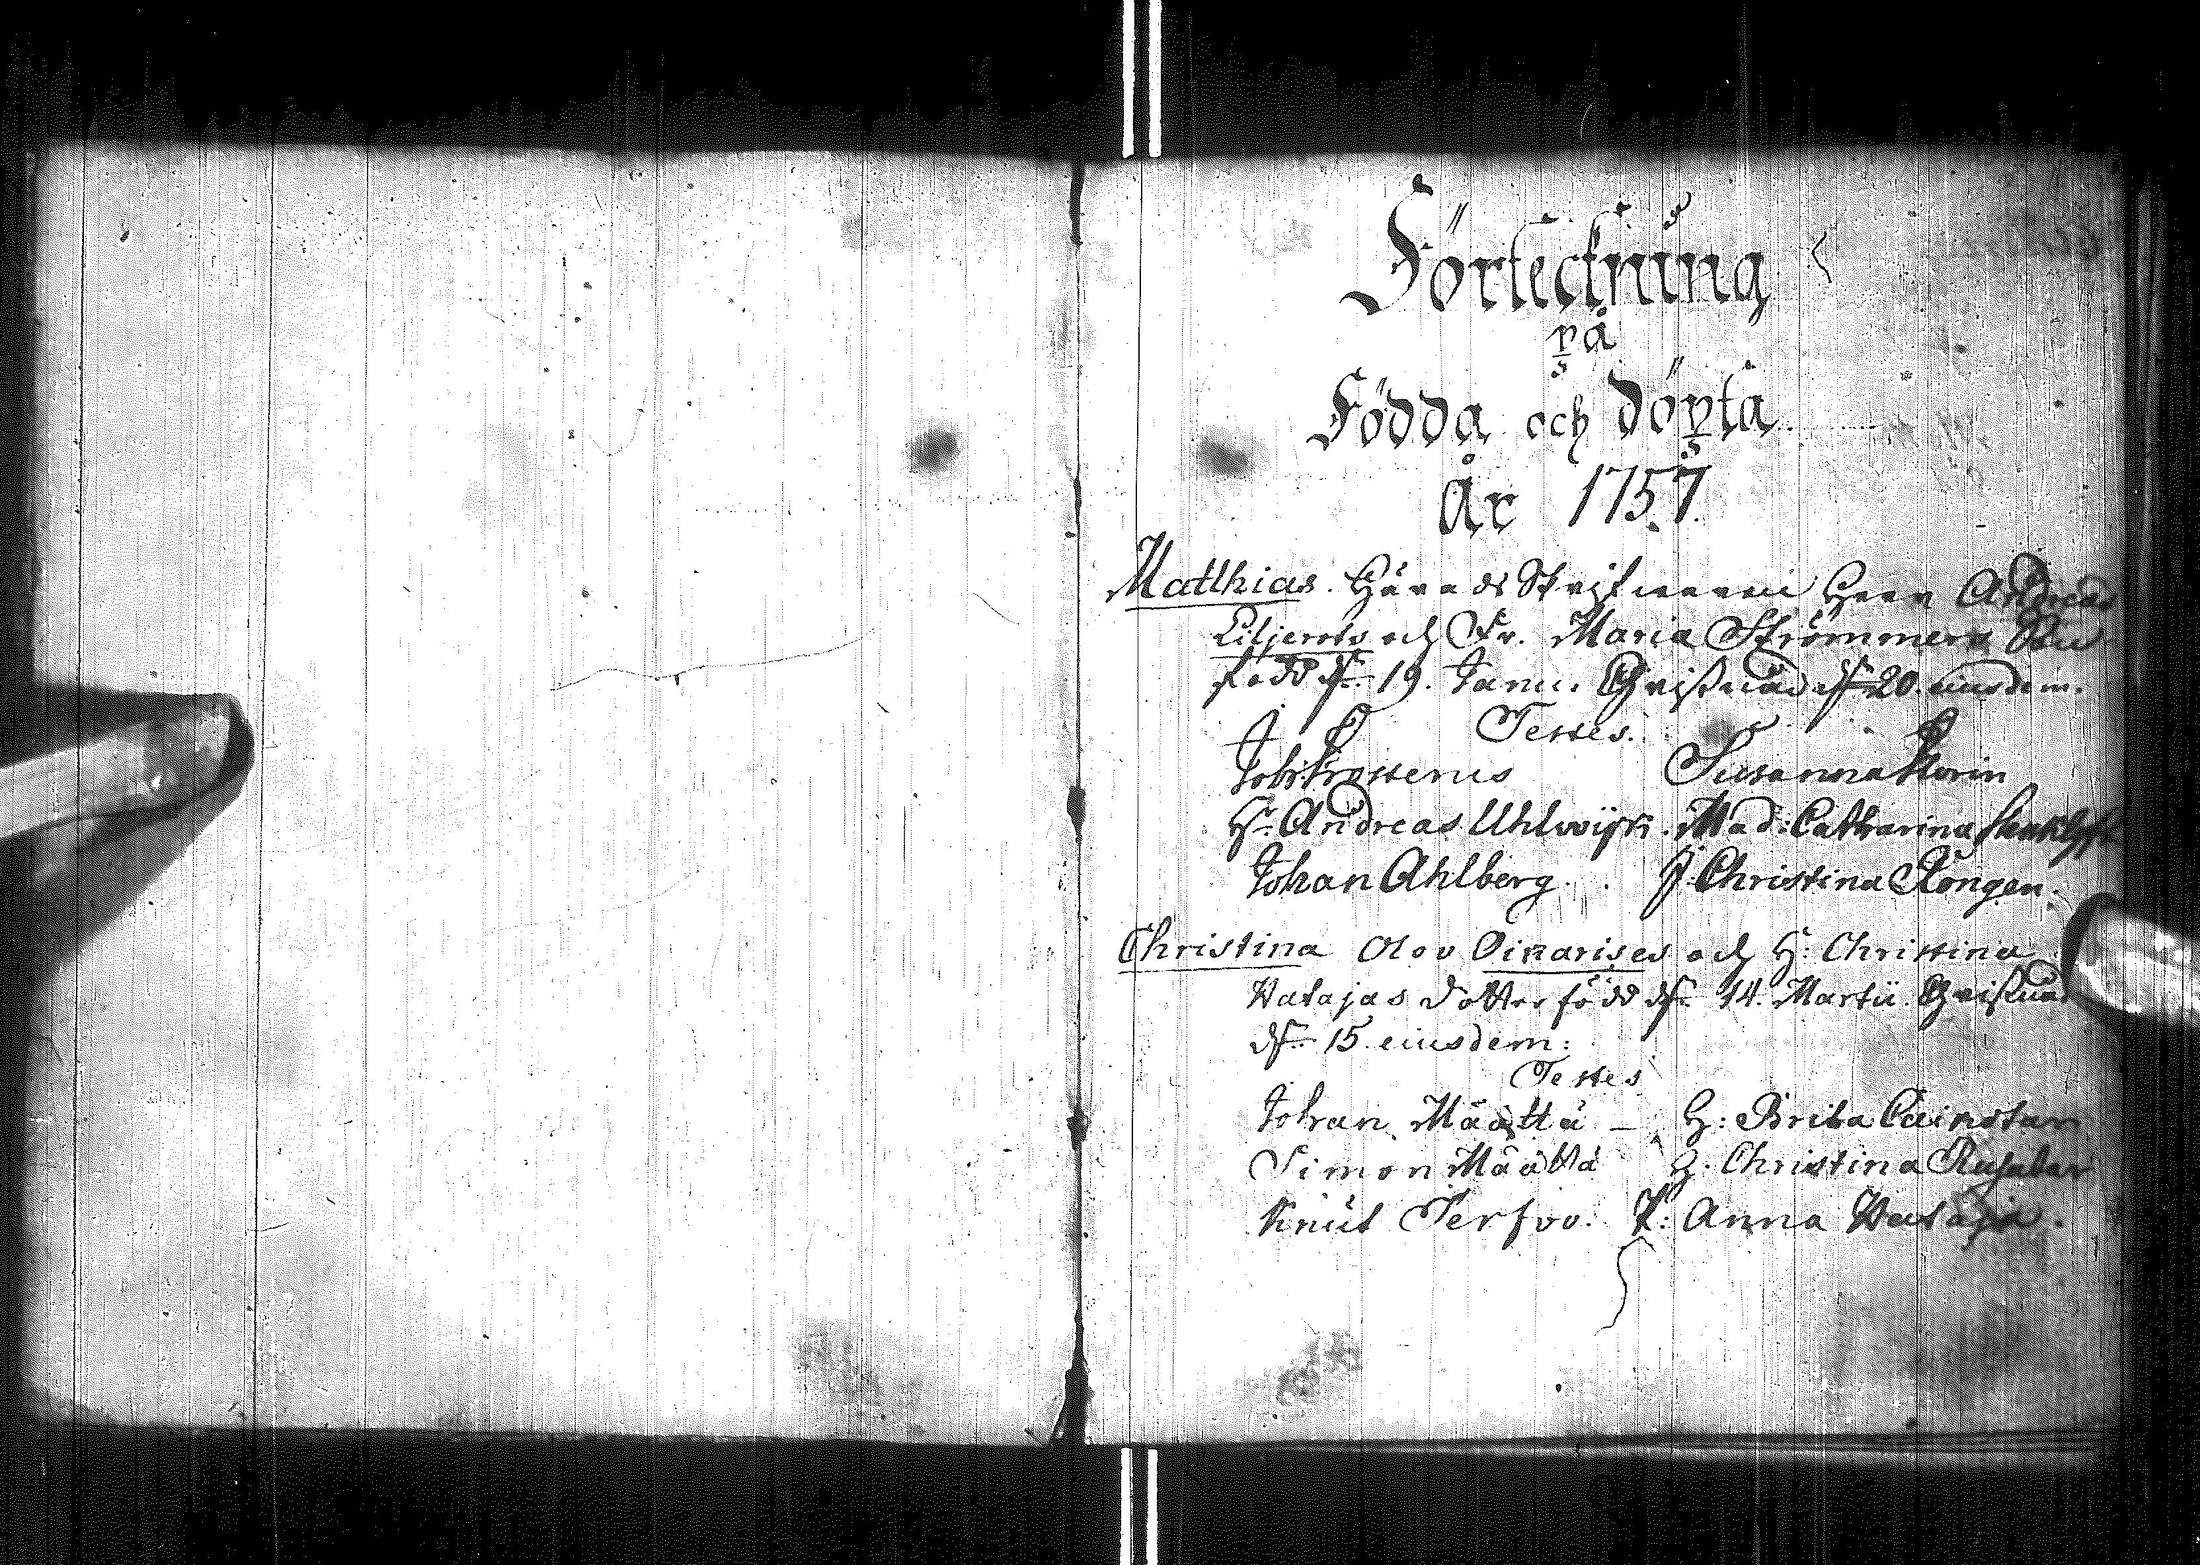 Förteckning
på
Födda och döpta
År 1757.
Matthias. Härads Skrifwaren Herr Andreas
Liljerots och Fr. Maria Strömmers Son
född d. 19. Janu. Christnad d. 20. eiusdem.
Testes.
Joh: Frosterus Susanna Florin
Hr. Andreas Uhlwijk. Mad: Catharina
Johan Ahlberg. J. Christina Köngen.
Christina Olov Oikarises och H: Christina
Watajas dotter född d. 14. Martii. Christnad
d. 15 eiusdem:
Testes
Johan Määttä – H: Brita
Simon Määttä H. Christina
Knut Terfvo. P: Anna Wataja.